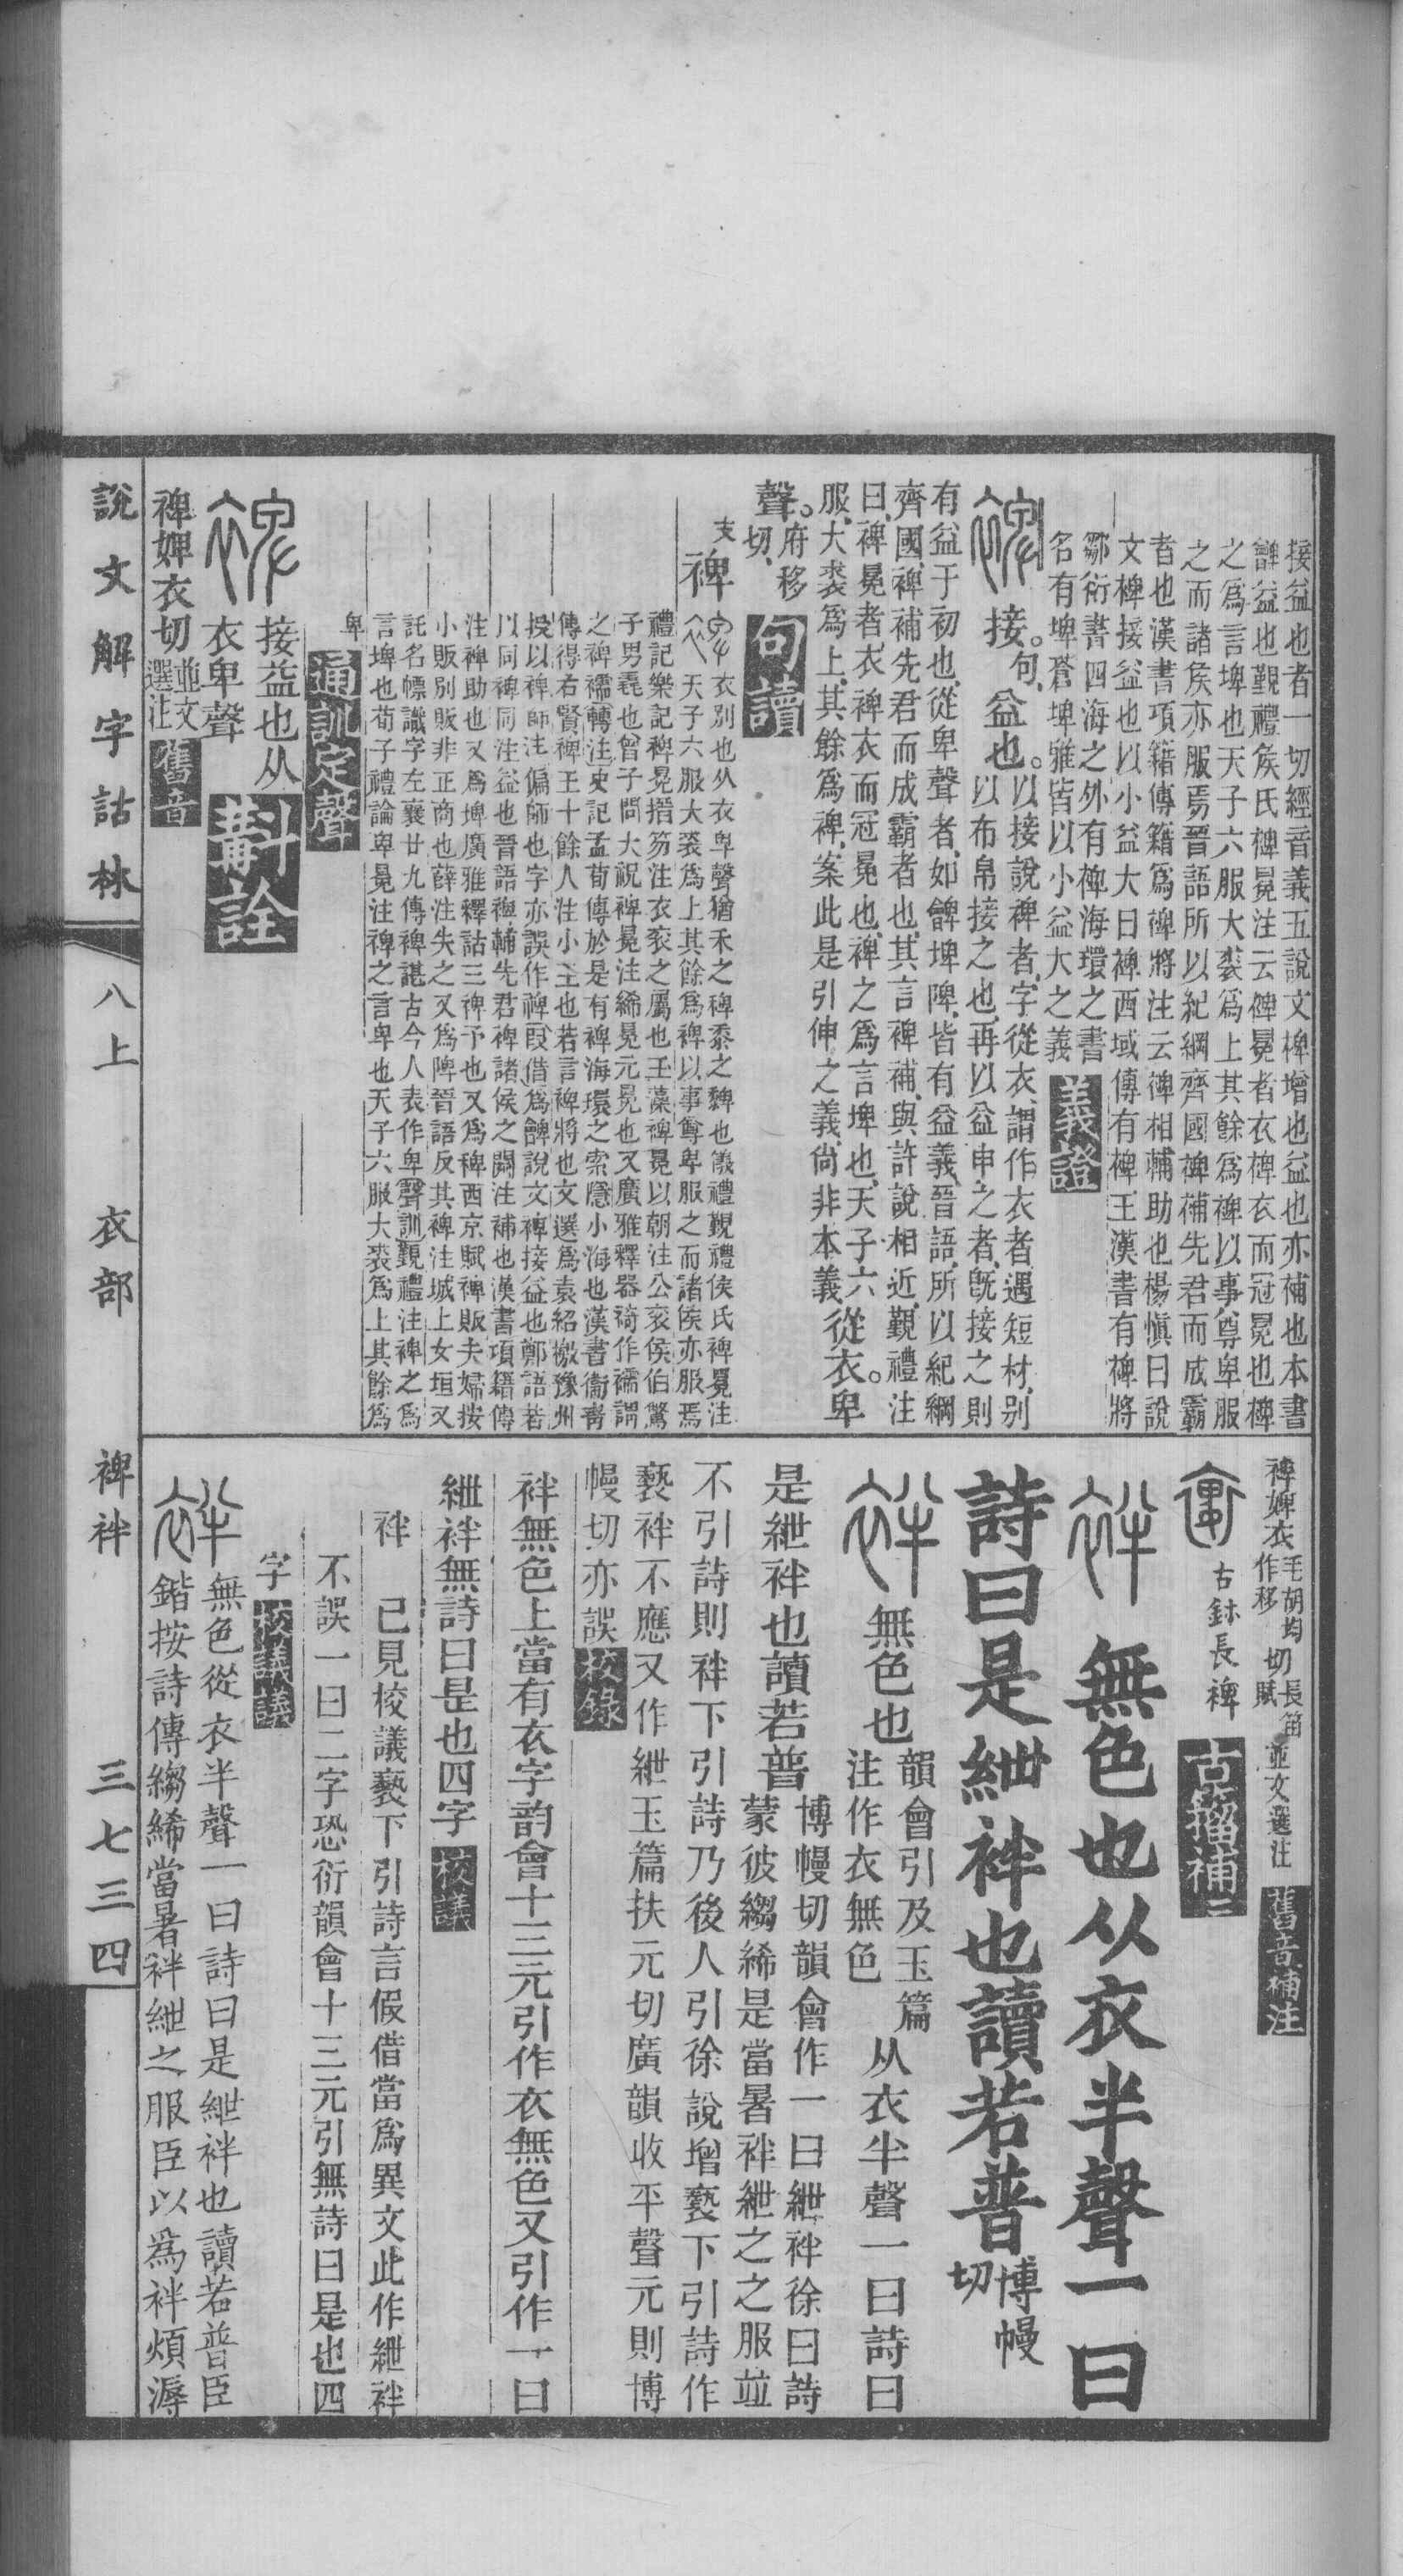 接益也者一切經音義五說文椑增也益也亦補也本書
𩏂益也覲禮侯氏裨冕注云裨冕者衣裨衣而冠冕也裨
之爲言埤也天子六服大裘爲上其餘爲裨以事尊卑服
之而諸侯亦服焉晉語所以紀綱齊國裨補先君而成霸
者也漢書項籍傳籍爲裨將注云裨相輔助也楊愼曰說
文裨接益也以小益大曰裨西域傳有裨王漢書有裨將
鄒衍書四海之外有裨海環之書
名有埤蒼埤雅皆以小益大之義 義證
接。句、益也。以接說裨者、字從衣、謂作衣者、遇短材、別
以布帛接之也、再以益申之者、旣接之則
有益于初也、從卑聲者、如𩏂埤陴、皆有益義、晉語、所以紀綱
齊國、裨補先君而成霸者也、其言裨補、與許說相近、覲禮注
曰、裨冕者、衣裨衣而冠冕也、裨之爲言埤也、天子六
服、大裘爲上、其餘爲裨、案此是引伸之義、尙非本義 從衣。卑
聲。府移切、 句讀
支 裨 衣別也从衣卑聲猶禾之稗黍之䅟也儀禮覲禮侯氏裨冕注
天子六服大裘爲上其餘爲裨以事尊卑服之而諸侯亦服焉
禮記樂記裨冕搢笏注衣袞之屬也玉藻裨冕以朝注公袞侯伯鷩
子男毳也曾子問大祝裨冕注絺冕元冕也又廣雅釋器裿作襦謂
之裨襦轉注史記孟荀傳於是有裨海環之索隱小海也漢書衞靑
傳得右賢裨王十餘人注小王也若言裨將也文選爲袁紹檄豫州
授以裨師注偏師也字亦誤作稗叚借爲𩏂說文裨接益也鄭語若
以同裨同注益也晉語裨輔先君裨諸侯之闕注補也漢書項籍傳
注裨助也又爲埤廣雅釋詁三裨予也又爲稗西京賦裨販夫婦按
小販別販非正商也薛注失之又爲陴晉語反其裨注城上女垣又
託名幖識字左襄廿九傳裨諶古今人表作卑聲訓覲禮注裨之爲
言埤也荀子禮論卑冕注裨之言卑也天子六服大裘爲上其餘爲
卑 通訓定聲
接益也从
衣卑聲 斠詮
裨婢衣切並文選注 舊音
說文解字詁林 八上 衣部 裨袢 三七三四
裨婢衣毛胡均作移切長笛賦並文選注 舊音補注
古鉥長裨 古籀補二
無色也从衣半聲一曰
詩曰是紲袢也讀若普博幔切
無色也韻會引及玉篇注作衣無色从衣半聲一曰詩曰
是紲袢也讀若普博幔切韻會作一曰紲袢徐曰詩蒙彼縐絺是當暑袢紲之之服並
不引詩則袢下引詩乃後人引徐說增褻下引詩作
褻袢不應又作紲玉篇扶元切廣韻收平聲元則博
幔切亦誤 校錄
袢無色上當有衣字韵會十三元引作衣無色又引作一曰
紲袢無詩曰是也四字 校議
袢 已見校議褻下引詩言假借當爲異文此作紲袢
不誤一曰二字恐衍韻會十三元引無詩曰是也四
字 校議議
無色從衣半聲一曰詩曰是紲袢也讀若普臣
鍇按詩傳縐絺當暑袢紲之服臣以爲袢煩溽